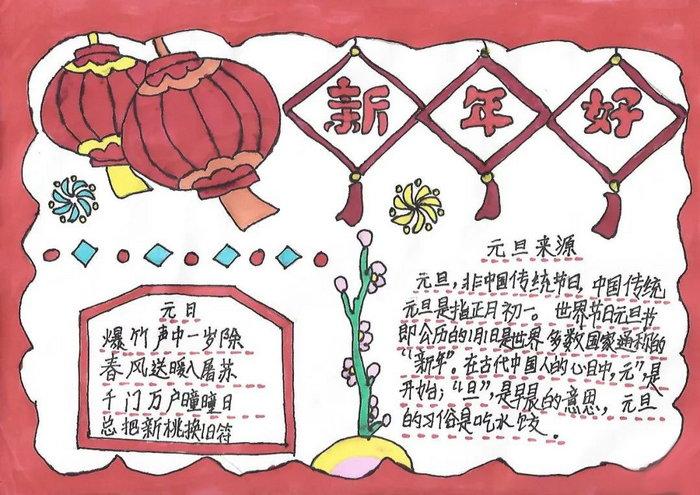 新年好
元日
爆竹声中一岁除
春风送暖入屠苏
千门万户曈曈日
总把新桃换旧符
元旦来源
元旦,非中国传统节日,中国传统
元旦是指正月初一。世界节日元旦节
即公历的1月1日是世界多数国家通称的
“新年”。在古代中国人的心目中,“元”,是
开始;“旦”,是早晨的意思,元旦
的习俗是吃水饺。